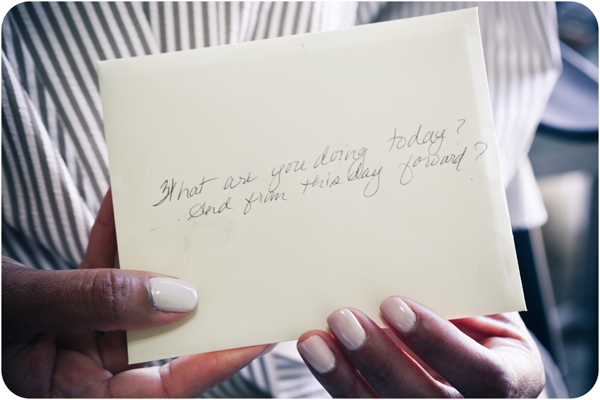 What are you doing today?
And from this day forward?